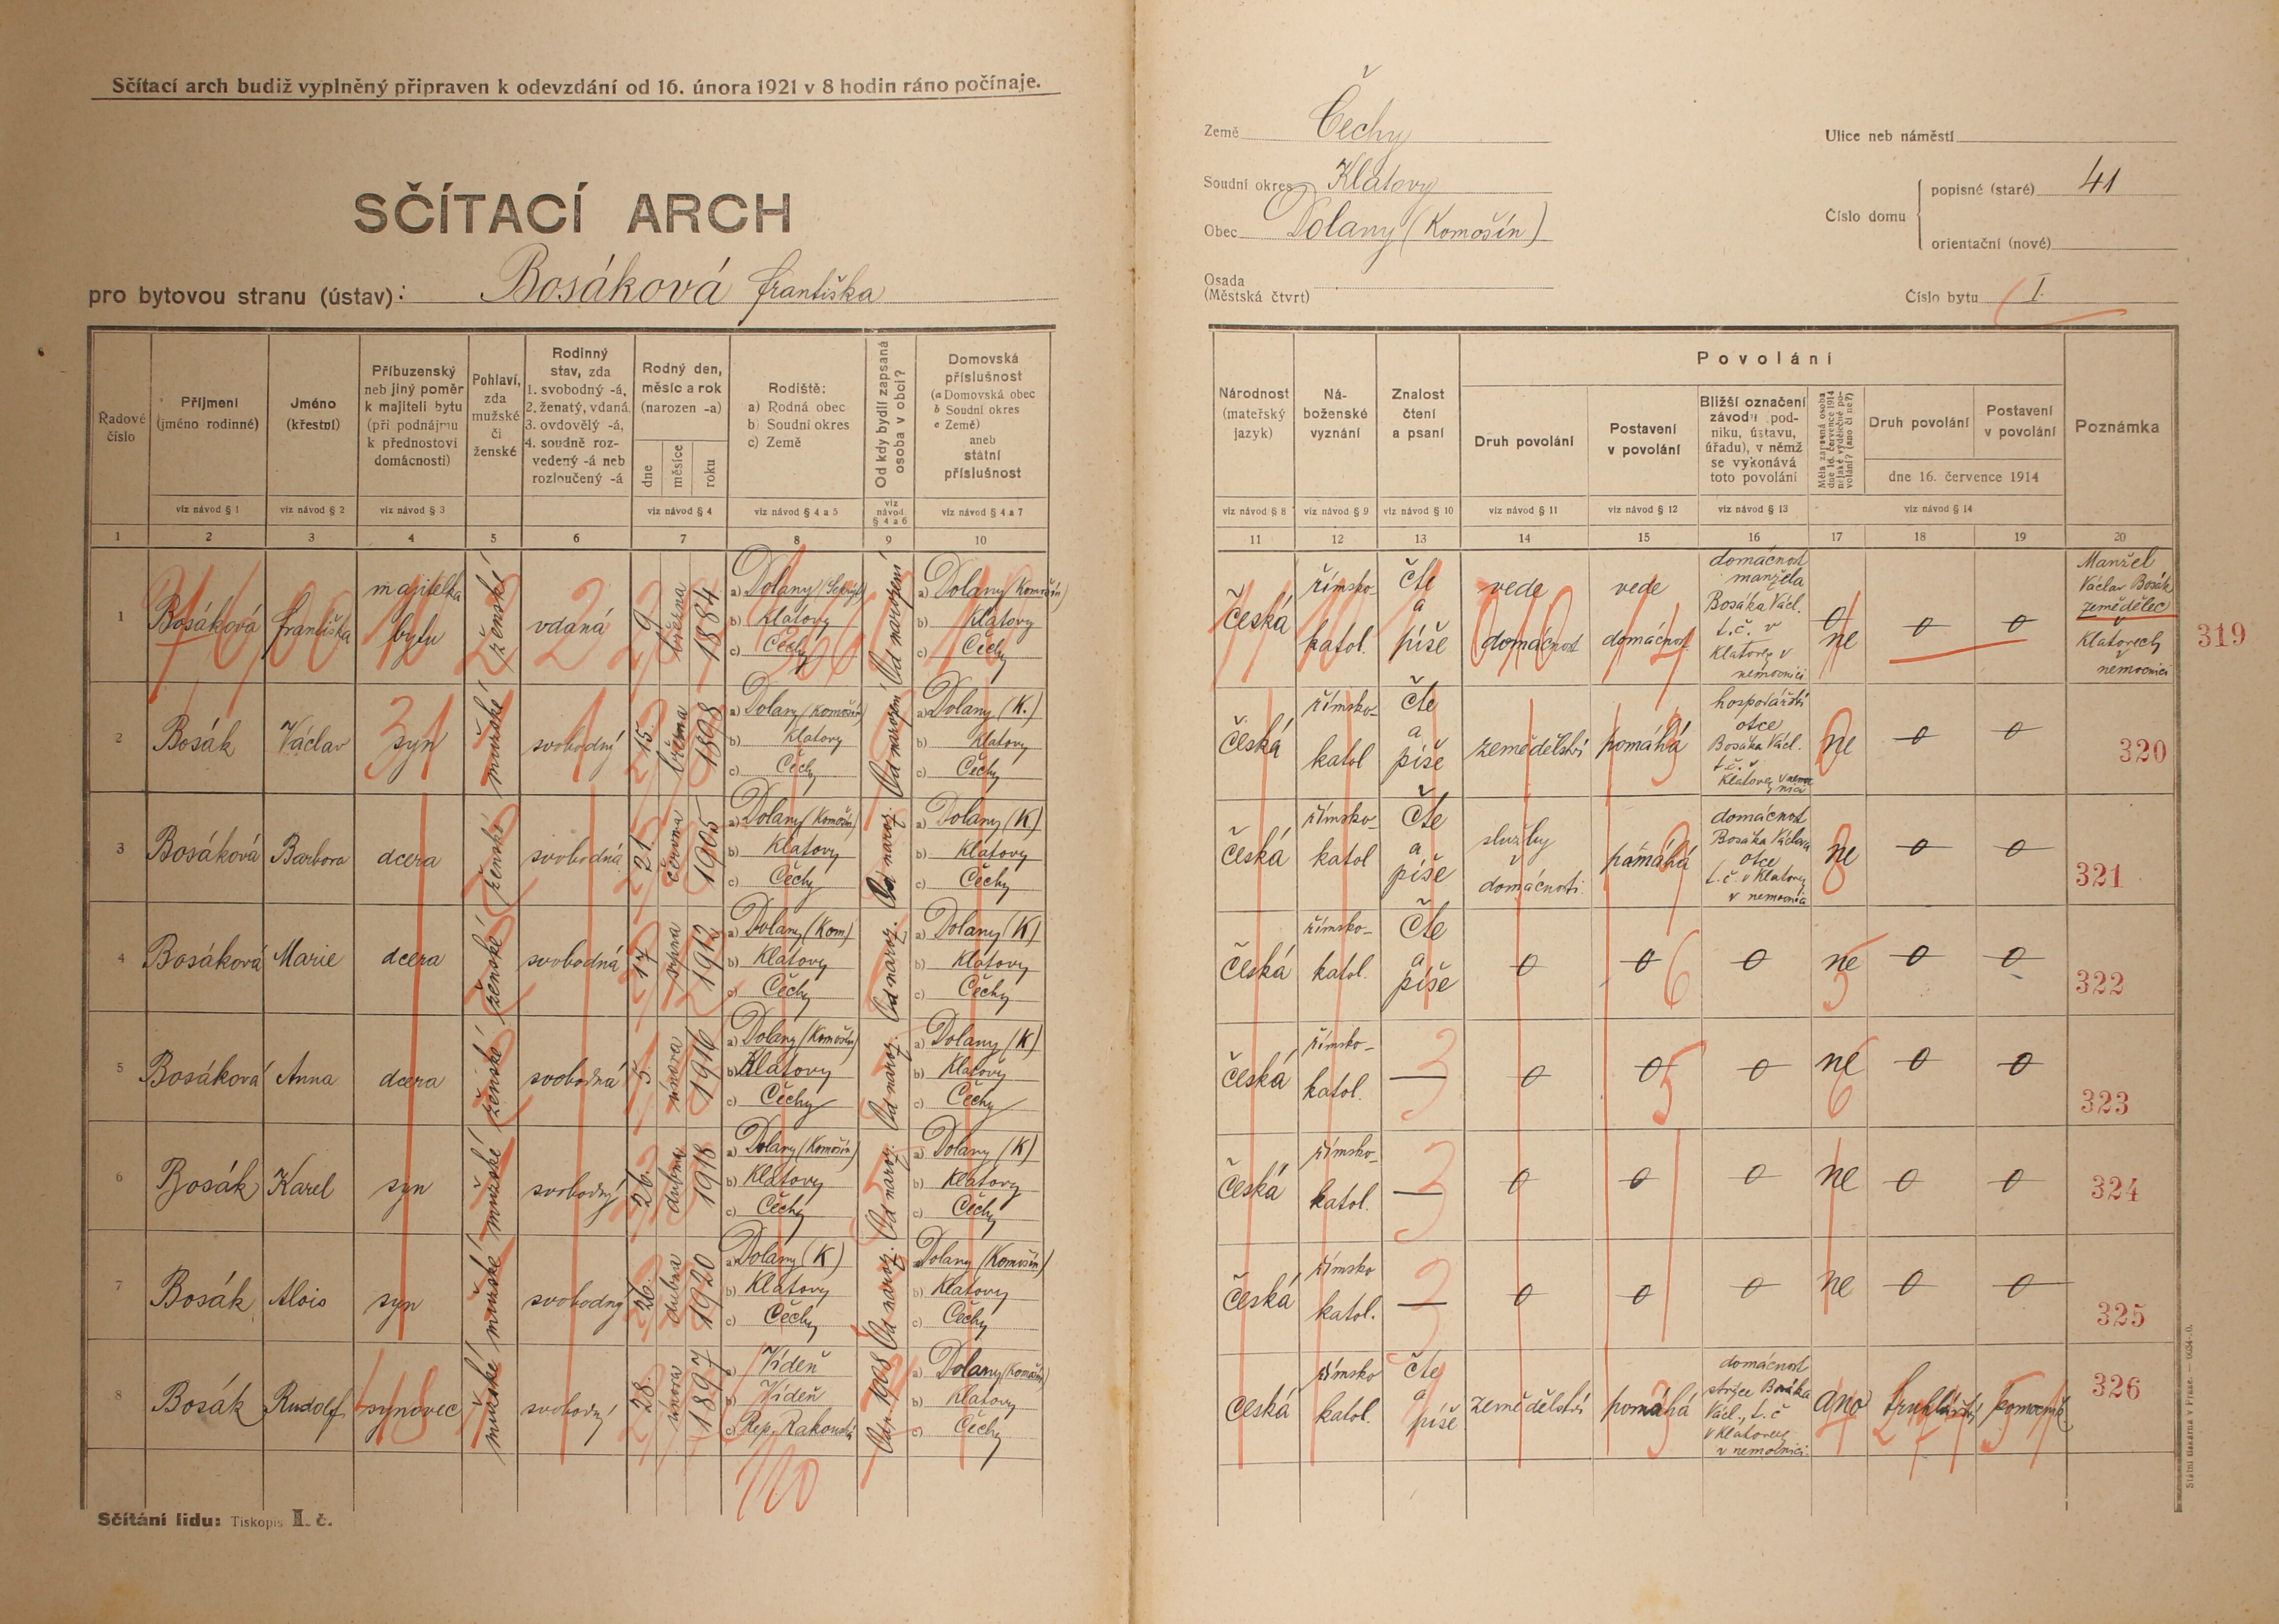 Sčítací arch budiž vyplněný připraven k odevzdání od 16. února 1921 v 8 hodin ráno počínaje.
SČÍTACÍ ARCH
pro bytovou stranu (ústav): Bosáková Františka
Země Čechy
Soudní okres Klatovy
Obec Dolany (Komošín)
Osada
(Městská čtvrt)
Ulice neb náměstí
Číslo domu
popisné (staré) 41
orientační (nové)
Číslo bytu I.
Řadové číslo
Příjmení (jméno rodinné)
Jméno (křestní)
Příbuzenský neb jiný poměr k majiteli bytu (při podnájmu k přednostovi domácnosti)
Pohlaví, zda mužské či ženské
Rodinný stav, zda 1. svobodný -á, 2. ženatý, vdaná, 3. ovdovělý -á, 4. soudně rozvedený -á neb rozloučený -á
Rodný den, měsíc a rok (narozen -a)
dne měsíce roku
Rodiště: a) Rodná obec b) Soudní okres c) Země
Od kdy bydlí zapsaná osoba v obci?
Domovská příslušnost (a Domovská obec b Soudní okres c Země) aneb státní příslušnost
viz návod § 1 viz návod § 2 viz návod § 3 viz návod § 4 viz návod § 4 a 5 viz návod § 4 a 6 viz návod § 4 a 7
1 2 3 4 5 6 7 8 9 10
Národnost (mateřský jazyk)
Náboženské vyznání
Znalost čtení a psaní
Povolání
Druh povolání
Postavení v povolání
Bližší označení závodu (podniku, ústavu, úřadu), v němž se vykonává toto povolání
Měla zapsaná osoba dne 16. července 1914 nějaké výdělečné povolání? (ano či ne?)
Druh povolání
Postavení v povolání
dne 16. července 1914
Poznámka
viz návod § 8 viz návod § 9 viz návod § 10 viz návod § 11 viz návod § 12 viz návod § 13 viz návod § 14
11 12 13 14 15 16 17 18 19 20
1 Bosáková Františka majitelka bytu ženské vdaná 9 března 1884 a) Dolany b) Klatovy c) Čechy Od narození a) Dolany (Komošín) b) Klatovy c) Čechy
česká římsko-katol. čte a píše vede domácnost vede domácnost domácnost manžela Bosáka Václ. t.č. v Klatovech v nemocnici 0 ne 0 0 Manžel Václav Bosák zemědělec v Klatovech v nemocnici 319
2 Bosák Václav syn mužské svobodný 15. března 1898 a) Dolany (Komošín) b) Klatovy c) Čechy Od narození a) Dolany (K.) b) Klatovy c) Čechy
česká římsko-katol čte a píše zemědělství pomáhá hospodářství otce Bosáka Václ. t.č. v Klatovech v nemocnici ne 0 0 320
3 Bosáková Barbora dcera ženské svobodná 21. června 1905 a) Dolany (Komošín) b) Klatovy c) Čechy Od naroz. a) Dolany (K) b) Klatovy c) Čechy
česká římsko-katol čte a píše služby v domácnosti pomáhá domácnost Bosáka Václava otce t.č. v Klatovech v nemocnici ne 0 0 321
4 Bosáková Marie dcera ženské svobodná 17. srpna 1912 a) Dolany (Kom) b) Klatovy c) Čechy Od naroz. a) Dolany (K) b) Klatovy c) Čechy
česká římsko-katol. čte a píše 0 0 0 ne 0 0 322
5 Bosáková Anna dcera ženské svobodná 5. února 1916 a) Dolany (Komošín) b) Klatovy c) Čechy Od naroz. a) Dolany (K) b) Klatovy c) Čechy
česká římsko-katol. — 0 0 0 ne 0 0 323
6 Bosák Karel syn mužské svobodný 26. dubna 1918 a) Dolany (Komošín) b) Klatovy c) Čechy Od naroz. a) Dolany (K) b) Klatovy c) Čechy
česká římsko-katol. — 0 0 0 ne 0 0 324
7 Bosák Alois syn mužské svobodný 26. dubna 1920 a) Dolany (K) b) Klatovy c) Čechy Od naroz. a) Dolany (Komošín) b) Klatovy c) Čechy
česká římsko katol. — 0 0 0 ne 0 0 325
8 Bosák Rudolf synovec mužské svobodný 28. února 1897 a) Vídeň b) Vídeň c) Rep. Rakouská 1908 a) Dolany (Komošín) b) Klatovy c) Čechy
česká římsko katol. čte a píše zemědělství pomáhá domácnost strýce Bosáka Václ., t.č. v Klatovech v nemocnici. ano truhlářství pomocník 326
110
Sčítání lidu: Tiskopis II. č.
Státní tiskárna v Praze.